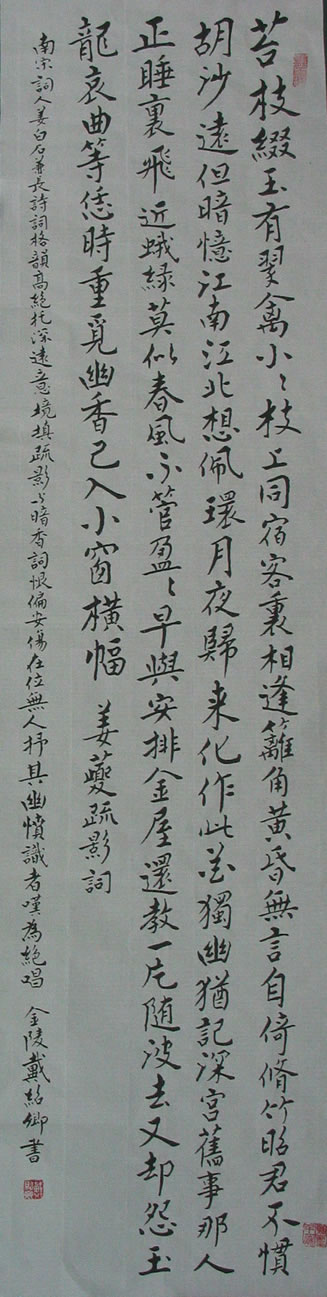 苔枝綴玉有翠禽小〻枝上同宿客裏相逢籬角黄昏無言自倚脩竹昭君不慣
胡沙遠但暗憶江南江北想佩環月夜歸来化作此花獨幽猶記深宮舊事那人
正睡裏飛近蛾緑莫似春風不管盈〻早與安排金屋還教一片随波去又却怨玉
龍哀曲等恁時重覓幽香已入小窗横幅 姜夔疏影詞
南宋詞人姜白石兼長詩詞格韻高絶托深遠意境填疏影与暗香詞恨偏安傷在位無人抒其幽憤識者嘆為絶唱 金陵戴紹卿書